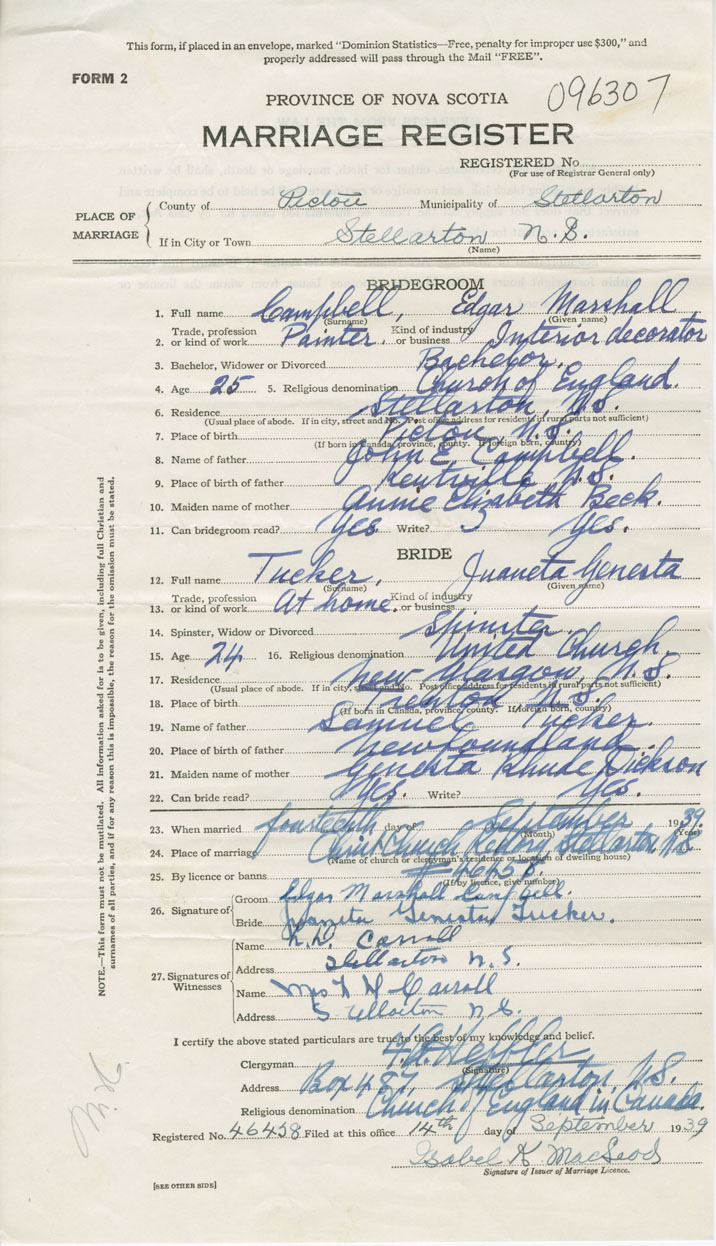 This form, if placed in an envelope, marked "Dominion Statistics—Free, penalty for improper use $300," and
properly addressed will pass through the Mail "FREE".
FORM 2
096307
PROVINCE OF NOVA SCOTIA
MARRIAGE REGISTER
REGISTERED No.
(For use of Registrar General only)
PLACE OF MARRIAGE
County of Pictou Municipality of Stellarton
If in City or Town Stellarton N.S.
(Name)
BRIDEGROOM
1. Full name Campbell, Edgar Marshall
(Surname) (Given name)
2. Trade, profession or kind of work Painter. Kind of industry or business Interior decorator
3. Bachelor, Widower or Divorced Bachelor.
4. Age 25 5. Religious denomination Church of England.
6. Residence Stellarton, N.S.
(Usual place of abode. If in city, street and No. Post office address for residents in rural parts not sufficient)
7. Place of birth Pictou, N.S.
(If born in Canada, province, county. If foreign born, country)
8. Name of father John E. Campbell.
9. Place of birth of father Kentville N.S.
10. Maiden name of mother Annie Elizabeth Beck.
11. Can bridegroom read? Yes. Write? Yes.
BRIDE
12. Full name Tucker, Juaneta Genesta
(Surname) (Given name)
13. Trade, profession or kind of work At home. Kind of industry or business
14. Spinster, Widow or Divorced Spinster.
15. Age 24 16. Religious denomination United Church.
17. Residence New Glasgow, N.S.
(Usual place of abode. If in city, street and No. Post office address for residents in rural parts not sufficient)
18. Place of birth N.S.
(If born in Canada, province, county. If foreign born, country)
19. Name of father Samuel Tucker.
20. Place of birth of father Newfoundland.
21. Maiden name of mother Genesta Rhude Dickson
22. Can bride read? Yes. Write? Yes.
23. When married fourteenth day of September 1939.
(Month) (Year)
24. Place of marriage Christ Church Rectory Stellarton N.S.
(Name of church or clergyman's residence or location of dwelling house)
25. By licence or banns # 46458.
(If by licence, give number)
26. Signature of
Groom Edgar Marshall Campbell.
Bride Juaneta Genesta Tucker.
27. Signatures of Witnesses
Name Carroll
Address Stellarton N.S.
Name Mrs Carroll
Address Stellarton N.S.
I certify the above stated particulars are true to the best of my knowledge and belief.
Clergyman
(Signature)
Address Box 487, Stellarton, N.S.
Religious denomination Church of England in Canada.
Registered No. 46458 Filed at this office 14th day of September 1939
Isobel K MacLeod
Signature of Issuer of Marriage Licence.
[SEE OTHER SIDE]
NOTE.—This form must not be mutilated. All information asked for is to be given, including full Christian and
surnames of all parties, and if for any reason this is impossible, the reason for the omission must be stated.